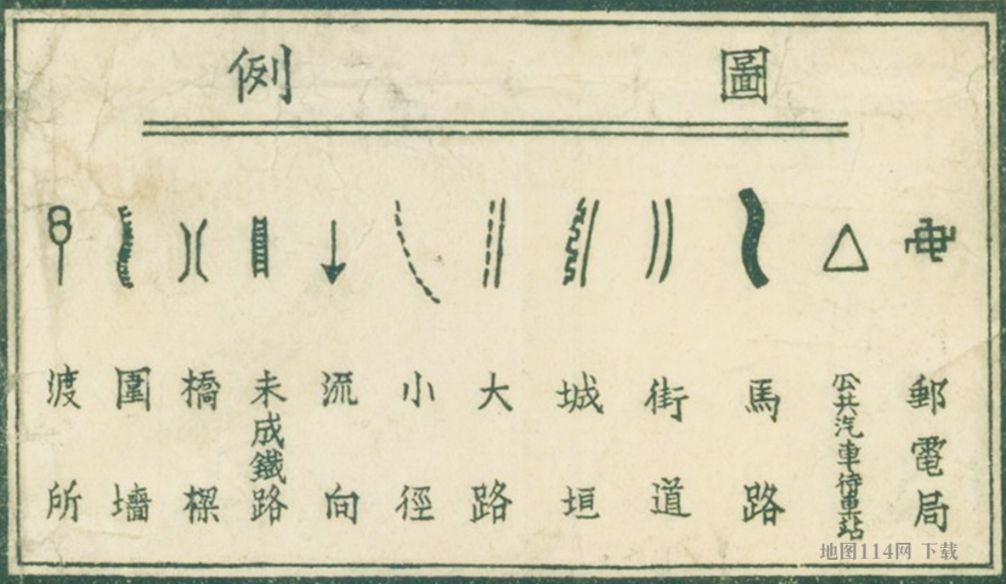 圖例
郵電局
公共汽車待車站
馬路
街道
城垣
大路
小徑
流向
未成鐵路
橋樑
圍墻
渡所
地图114网 下载